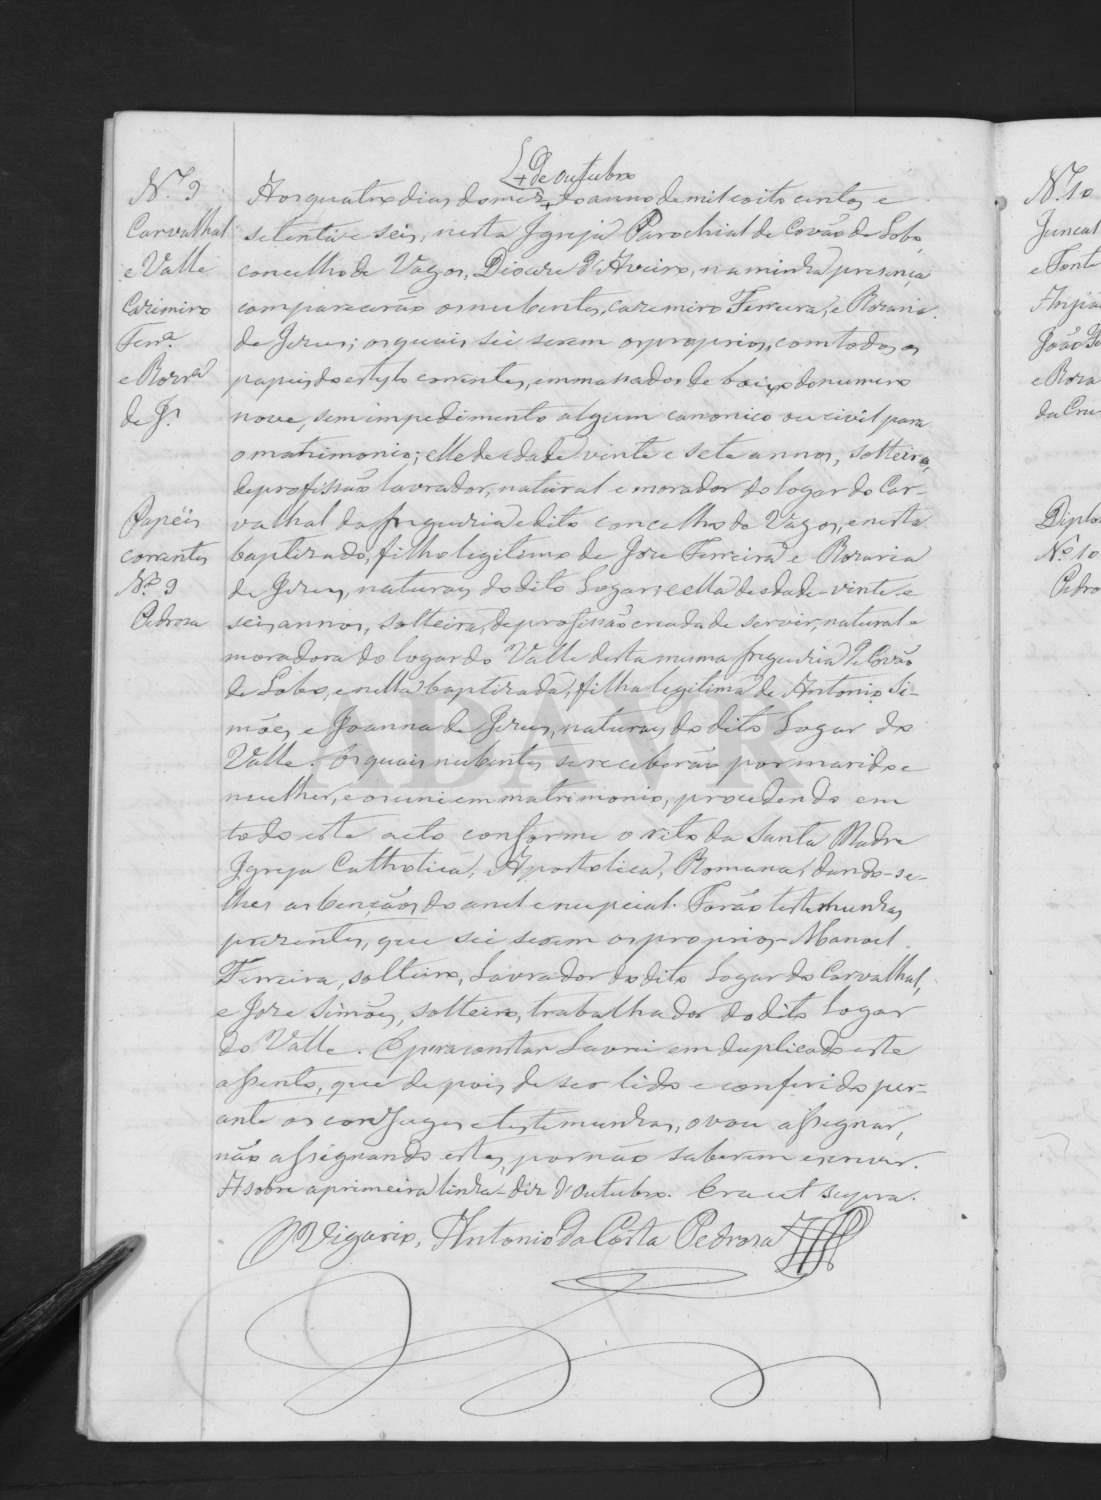 N.º 9
Carvalhal
e Valle
Cazimiro
Ferr.ª
e Rozr.ª
de J.s
Papeis
correntes
N.º 9
Pedroza
+ de outubro
Aos quatro dias do mez + do anno de mil oito centos e
setenta e seis, nesta Igreja Parochial de Covão do Lobo,
concelho de Vagos, Diocese d'Aveiro, na minha presença
comparecerão os nubentes, Cazemiro Ferreira, e Rozaria
de Jezus; os quais sei serem os proprios, com todos os
papeis do estylo correntes, emmassados de baixo do numero
nove, sem impedimento algum canonico ou civil para
o matrimonio; elle de edade vinte e sete annos, solteiro,
de profissão lavrador, natural e morador do logar do Car-
valhal da freguezia e dito concelho de Vagos, e nesta
baptizado, filho legitimo de Joze Ferreira e Rozaria
de Jezus, naturaes do dito Logar: e ella de edade vinte e
seis annos, solteira, de profissão creada de servir, natural e
moradora do logar do Valle desta mesma freguezia de Covão
do Lobo, e nella baptizada, filha legitima de Antonio Si-
mões, e Joanna de Jezus, naturaes do dito Logar do
Valle. Os quais nubentes se receberão por marido e
mulher, e os uni em matrimonio, procedendo em
todo este acto conforme o rito da Santa Madre
Igreja Catholica, Apostolica, Romana, dando-se-
lhes as bençãos do anel e nupcial. Forão testemunhas
prezentes, que sei serem os proprios - Manoel
Ferreira, solteiro, Lavrador do dito Logar do Carvalhal,
e Joze Simões, solteiro, trabalhador do dito Logar
do Valle. E para constar Lavrei em duplicado este
assento, que depois de ser lido e conferido per-
ante os conjuges e testemunhas, o vou assegnar,
não assignando estes, por não saberem escrever.
A sobre a primeira linha - diz d'outubro. Era ut supra.
O Vigario, Antonio da Costa Pedroza
ADAVR
N.º 10
Juncal
e Fonte
João
e Roza
da Cru
N.º 10
Pedro